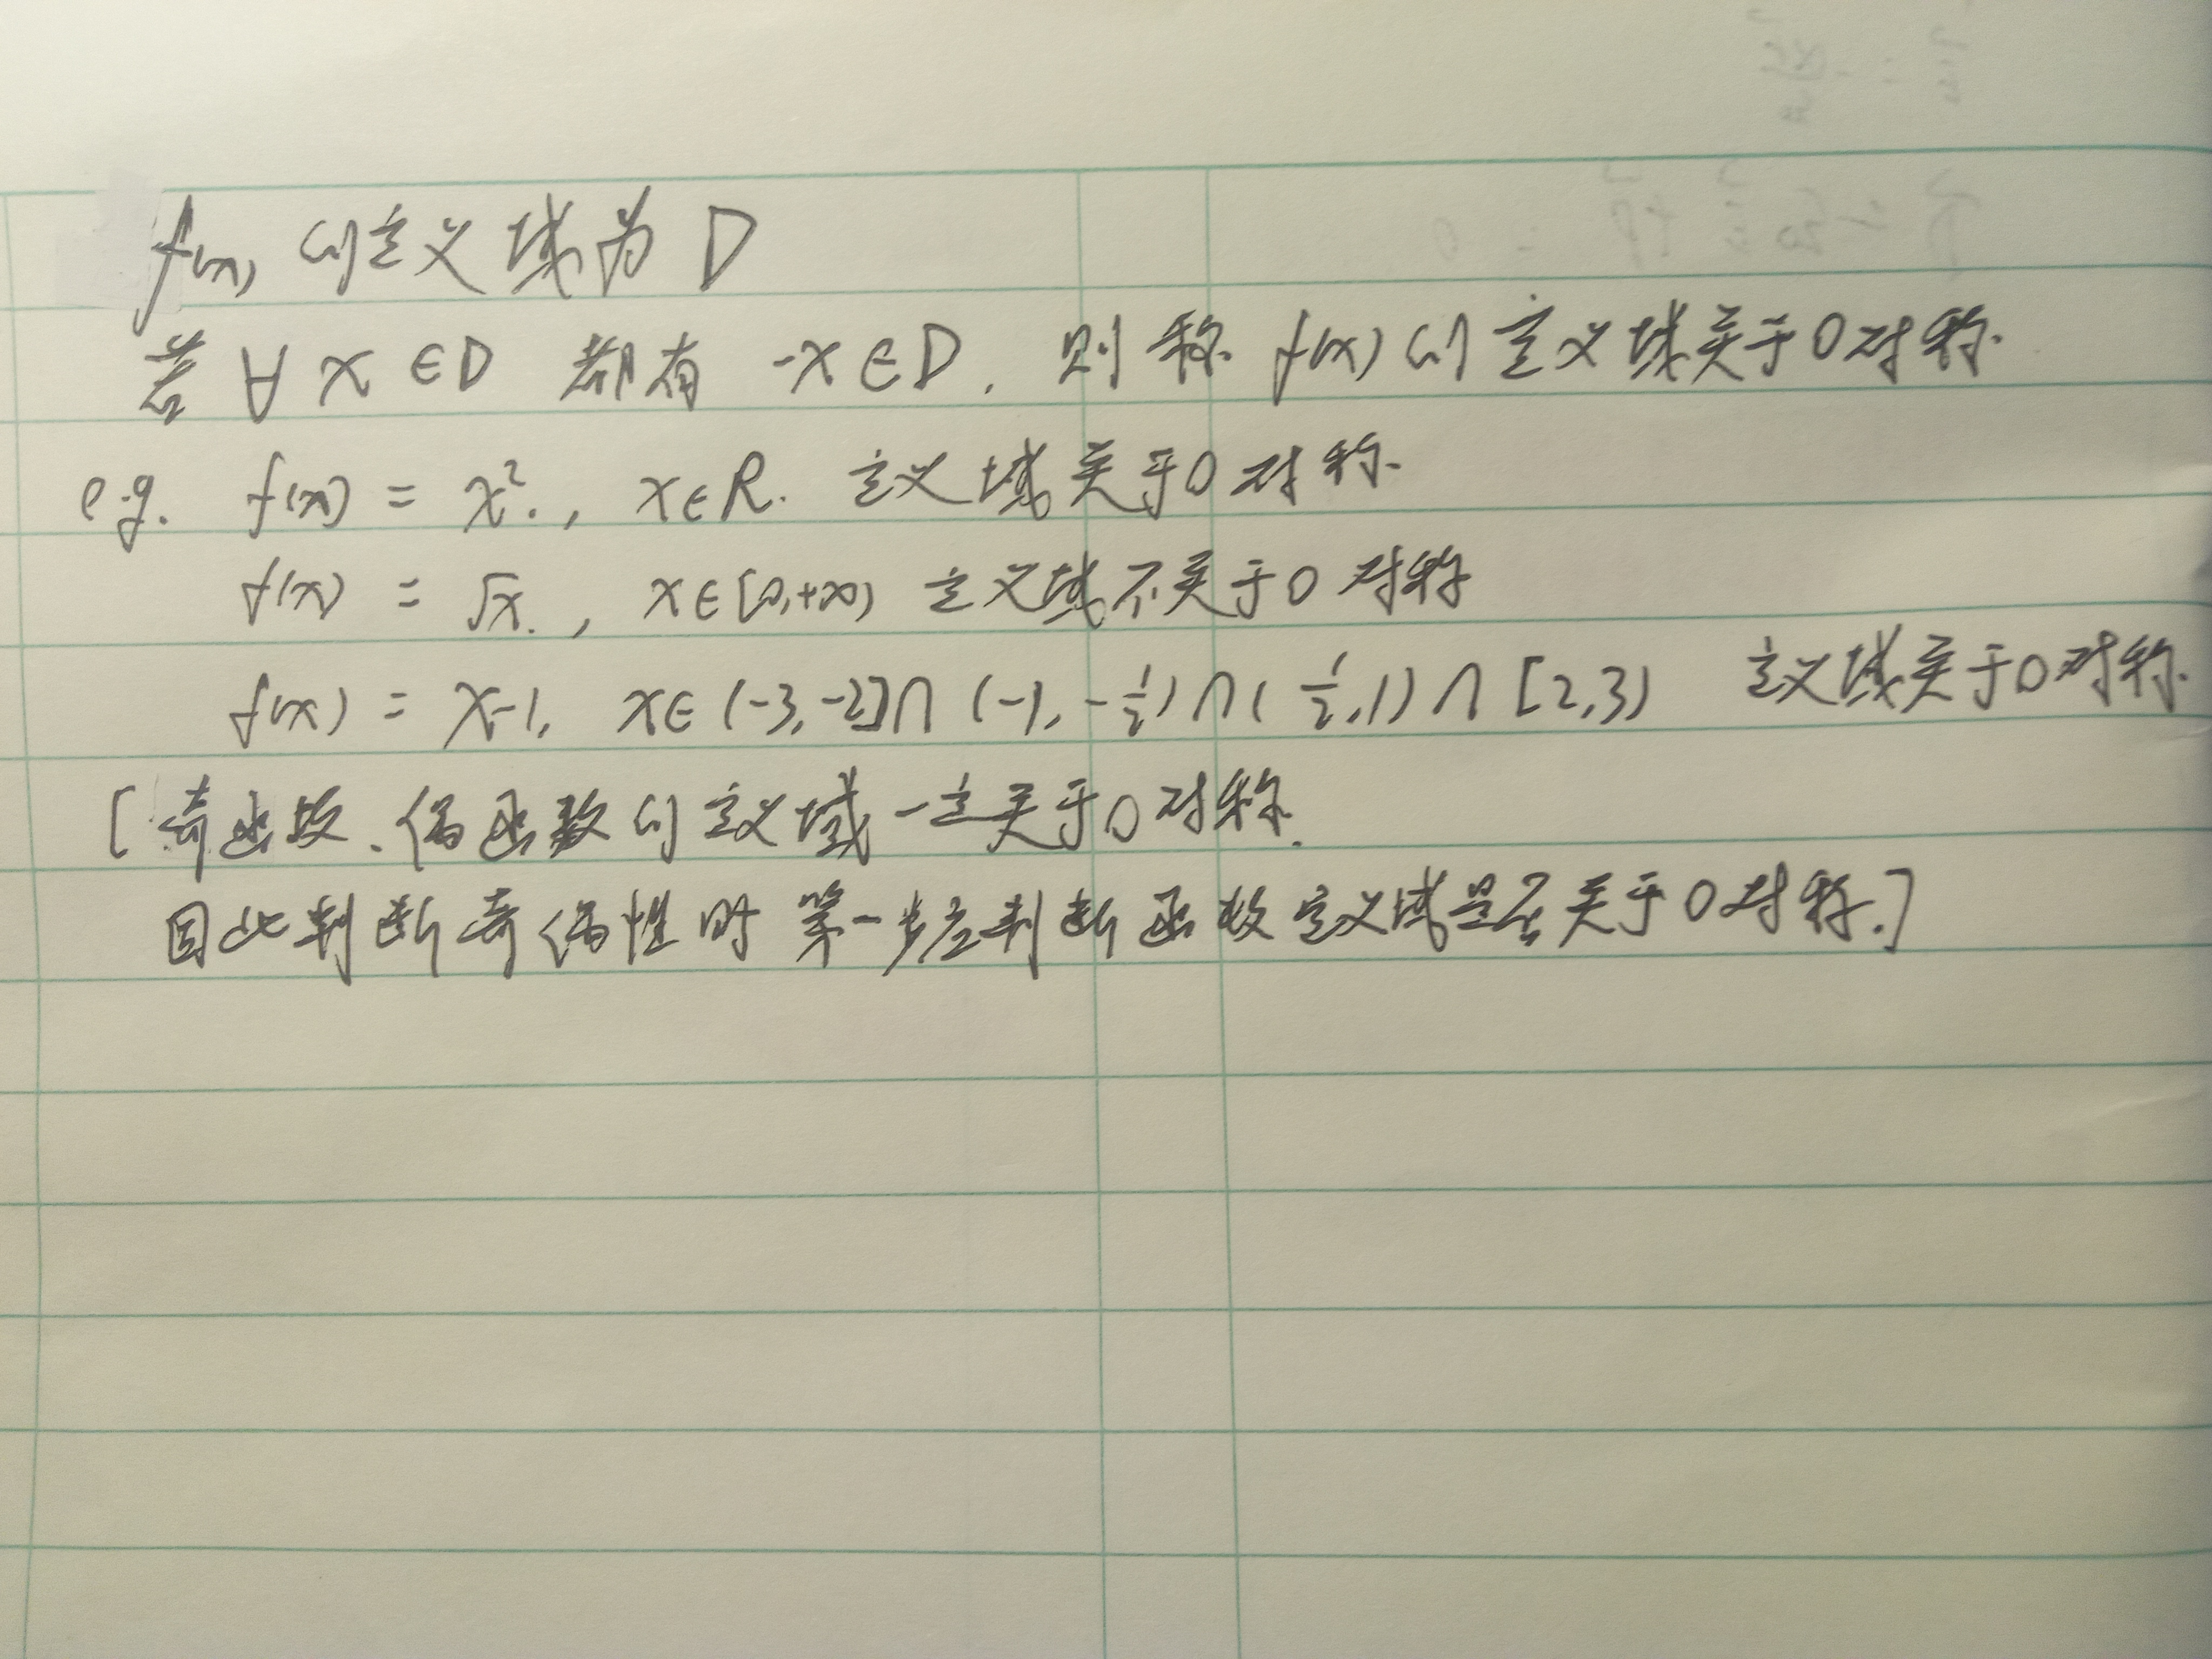 f(x) 的定义域为 D
若 ∀ x ∈D 都有 -x ∈D. 则称 f(x) 的定义域关于0对称.
e.g. f(x) = x²., x∈R. 定义域关于0对称.
f(x) = √x., x∈[0,+∞) 定义域不关于0对称
f(x) = x-1, x∈(-3,-2]∩(-1,-1/2)∩(1/2,1)∩[2,3) 定义域关于0对称.
[奇函数、偶函数的定义域一定关于0对称.
因此判断奇偶性时第一步应判断函数定义域是否关于0对称.]